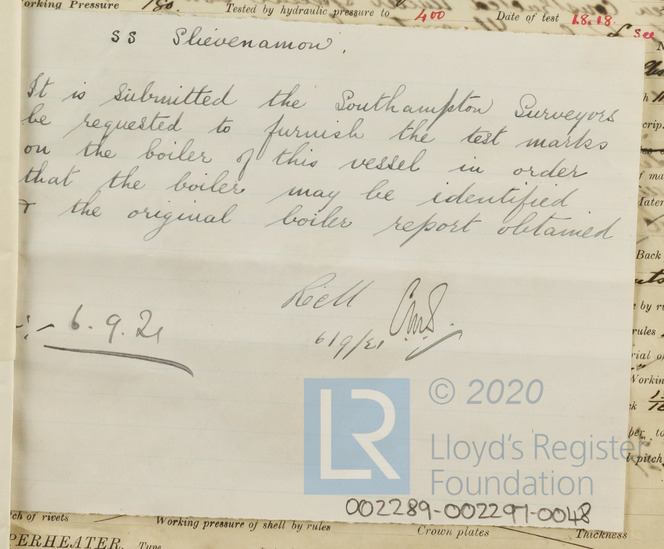 orking Pressure 180. Tested by hydraulic pressure to 400 Date of test 1.8.18. See
SS Slievenamon.
It is submitted the Southampton Surveyors
be requested to furnish the test marks
on the boiler of this vessel in order
that the boiler may be identified
& the original boiler report obtained
6.9.21
6/9/21
© 2020
LR
Lloyd's Register
Foundation
002289-002297-0048
ch of rivets Working pressure of shell by rules Crown plates Thickness
PERHEATER. Type
Back
by ru
rules
rial o
Workin
per to
l pitch